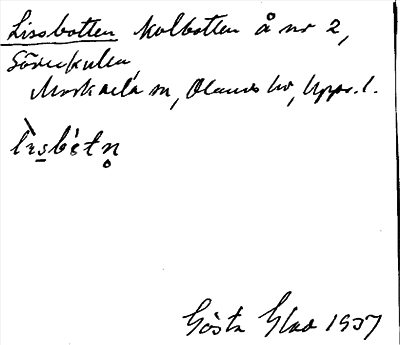 Lissbotten Kolbotten å nr 2,
Sörukulla,
Morkarla sn, Olands hd, Upps. l.
lìsbétn̥
Gösta Glad 1937